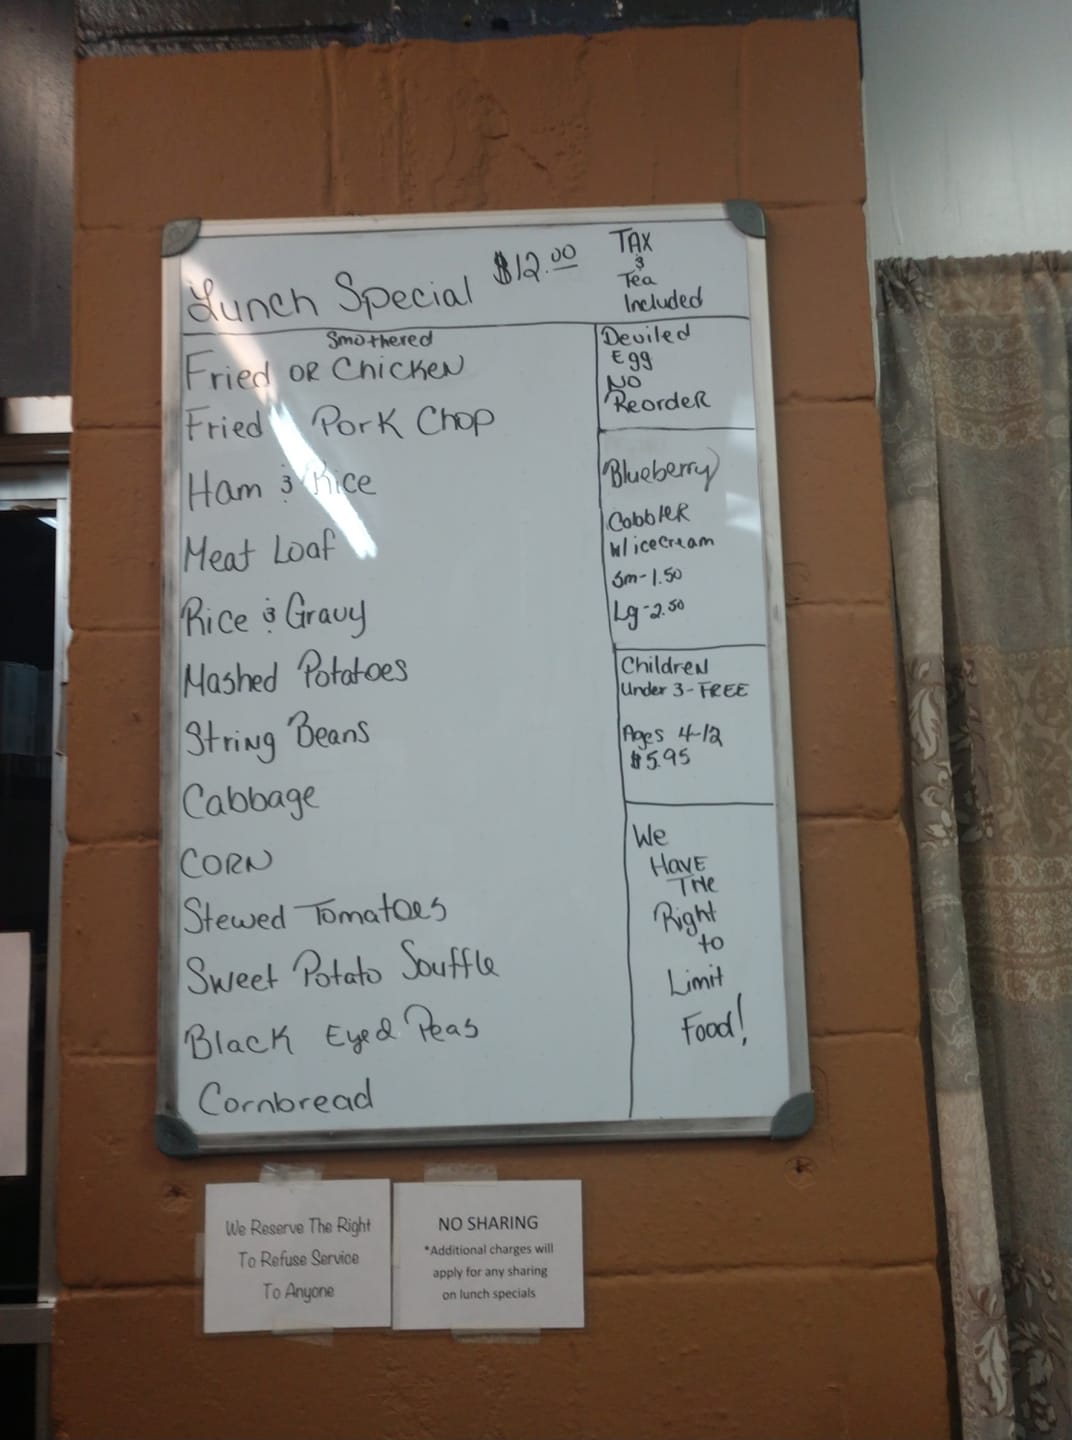 Lunch Special $12.00
TAX
&
Tea
Included
Smothered
Fried OR Chicken
Fried Pork Chop
Ham & Rice
Meat Loaf
Rice & Gravy
Mashed Potatoes
String Beans
Cabbage
CORN
Stewed Tomatoes
Sweet Potato Souffle
Black Eyed Peas
Cornbread
Deviled
Egg
NO
Reorder
Blueberry
Cobbler
w/icecream
Sm-1.50
Lg-2.50
Children
Under 3-FREE
Ages 4-12
$5.95
We
HAVE
THE
Right
to
Limit
Food!
We Reserve The Right
To Refuse Service
To Anyone
NO SHARING
*Additional charges will
apply for any sharing
on lunch specials